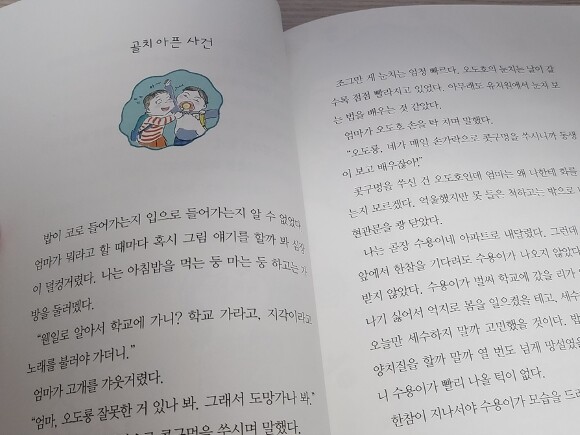 골치 아픈 사건
밥이 코로 들어가는지 입으로 들어가는지 알 수 없었다
엄마가 뭐라고 할 때마다 혹시 그림 얘기를 할까 봐
이 덜컹거렸다. 나는 아침밥을 먹는 둥 마는 둥 하고는
방을 둘러멨다.
"웬일로 알아서 학교에 가니? 학교 가라고, 지각이라고
노래를 불러야 가더니."
엄마가 고개를 갸웃거렸다.
"엄마, 오도룡 잘못한 거 있나 봐. 그래서 도망가나 봐."
콧구멍을 쑤시며 말했다.
조그만 게 눈치는 엄청 빠르다. 오도호의 눈치는 날이 갈
수록 점점 빨라지고 있었다. 아무래도 유치원에서 눈치 보
는 법을 배우는 것 같았다.
엄마가 오도호 손을 탁 치며 말했다.
"오도룡, 네가 매일 손가락으로 콧구멍을 쑤시니까 동생
이 보고 배우잖아!"
콧구멍을 쑤신 건 오도호인데 엄마는 왜 나한테 화를
는지 모르겠다. 억울했지만 못 들은 척하고는 밖으로
현관문을 쾅 닫았다.
나는 곧장 수용이네 아파트로 내달렸다. 그런데
앞에서 한참을 기다려도 수용이가 나오지 않았다
받지 않았다. 수용이가 벌써 학교에 갔을 리가
나기 싫어서 억지로 몸을 일으켰을 테고, 세수
오늘만 세수하지 말까 고민했을 것이다. 밥
양치질을 할까 말까 열 번도 넘게 망설였을
니 수용이가 빨리 나올 턱이 없다.
한참이 지나서야 수용이가 모습을